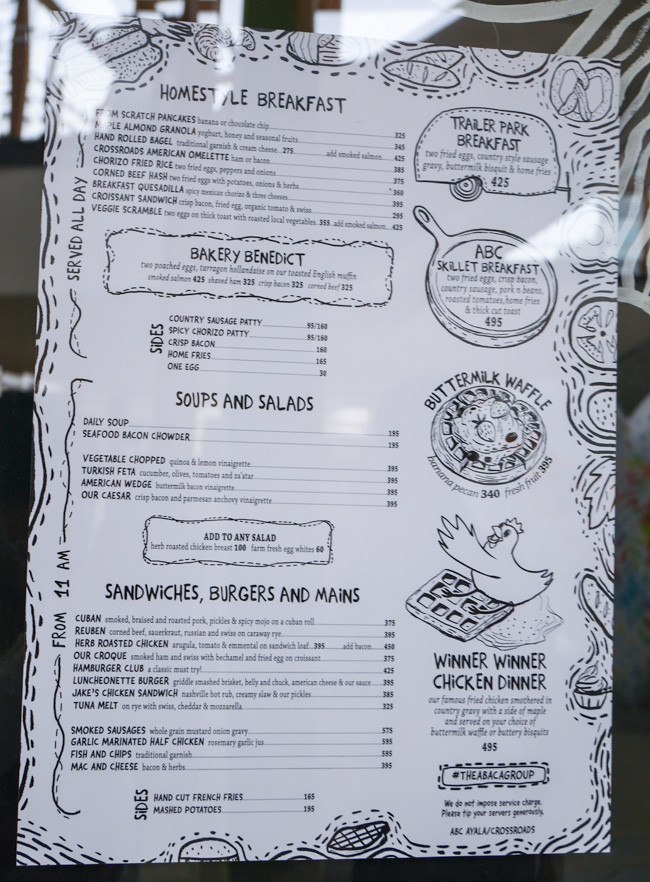 HOMESTYLE BREAKFAST
FROM SCRATCH PANCAKES banana or chocolate chip 325
MAPLE ALMOND GRANOLA yoghurt, honey and seasonal fruits 345
HAND ROLLED BAGEL traditional garnish & cream cheese 275 add smoked salmon 425
CROSSROADS AMERICAN OMELETTE ham or bacon 385
CHORIZO FRIED RICE two fried eggs, peppers and onions 375
CORNED BEEF HASH two fried eggs with potatoes, onions & herbs 360
BREAKFAST QUESADILLA spicy mexican chorizo & three cheeses 395
CROISSANT SANDWICH crisp bacon, fried egg, organic tomato & swiss 295
VEGGIE SCRAMBLE two eggs on thick toast with roasted local vegetables 355 add smoked salmon 425
SERVED ALL DAY
BAKERY BENEDICT
two poached eggs, tarragon hollandaise on our toasted English muffin
smoked salmon 425 shaved ham 325 crisp bacon 325 corned beef 325
SIDES
COUNTRY SAUSAGE PATTY 95/160
SPICY CHORIZO PATTY 95/160
CRISP BACON 160
HOME FRIES 165
ONE EGG 30
SOUPS AND SALADS
DAILY SOUP 195
SEAFOOD BACON CHOWDER 195
VEGETABLE CHOPPED quinoa & lemon vinaigrette 395
TURKISH FETA cucumber, olives, tomatoes and za'atar 395
AMERICAN WEDGE buttermilk bacon vinaigrette 395
OUR CAESAR crisp bacon and parmesan anchovy vinaigrette 395
ADD TO ANY SALAD
herb roasted chicken breast 100 farm fresh egg whites 60
FROM 11 AM
SANDWICHES, BURGERS AND MAINS
CUBAN smoked, braised and roasted pork, pickles & spicy mojo on a cuban roll 375
REUBEN corned beef, sauerkraut, russian and swiss on caraway rye 395
HERB ROASTED CHICKEN arugula, tomato & emmental on sandwich loaf 395 add bacon 450
OUR CROQUE smoked ham and swiss with bechamel and fried egg on croissant 375
HAMBURGER CLUB a classic must try! 425
LUNCHEONETTE BURGER griddle smashed brisket, belly and chuck, american cheese & our sauce 395
JAKE'S CHICKEN SANDWICH nashville hot rub, creamy slaw & our pickles 385
TUNA MELT on rye with swiss, cheddar & mozzarella 325
SMOKED SAUSAGES whole grain mustard onion gravy 575
GARLIC MARINATED HALF CHICKEN rosemary garlic jus 595
FISH AND CHIPS traditional garnish 595
MAC AND CHEESE bacon & herbs 395
SIDES
HAND CUT FRENCH FRIES 165
MASHED POTATOES 195
TRAILER PARK
BREAKFAST
two fried eggs, country style sausage
gravy, buttermilk bisquit & home fries
425
ABC
SKILLET BREAKFAST
two fried eggs, crisp bacon,
country sausage, pork n beans,
roasted tomatoes, home fries
& thick cut toast
495
BUTTERMILK WAFFLE
banana pecan 340 fresh fruit 395
WINNER WINNER
CHICKEN DINNER
our famous fried chicken smothered in
country gravy with a side of maple
and served on your choice of
buttermilk waffle or buttery bisquits
495
#THEABACAGROUP
We do not impose service charge.
Please tip your servers generously.
ABC AYALA/CROSSROADS